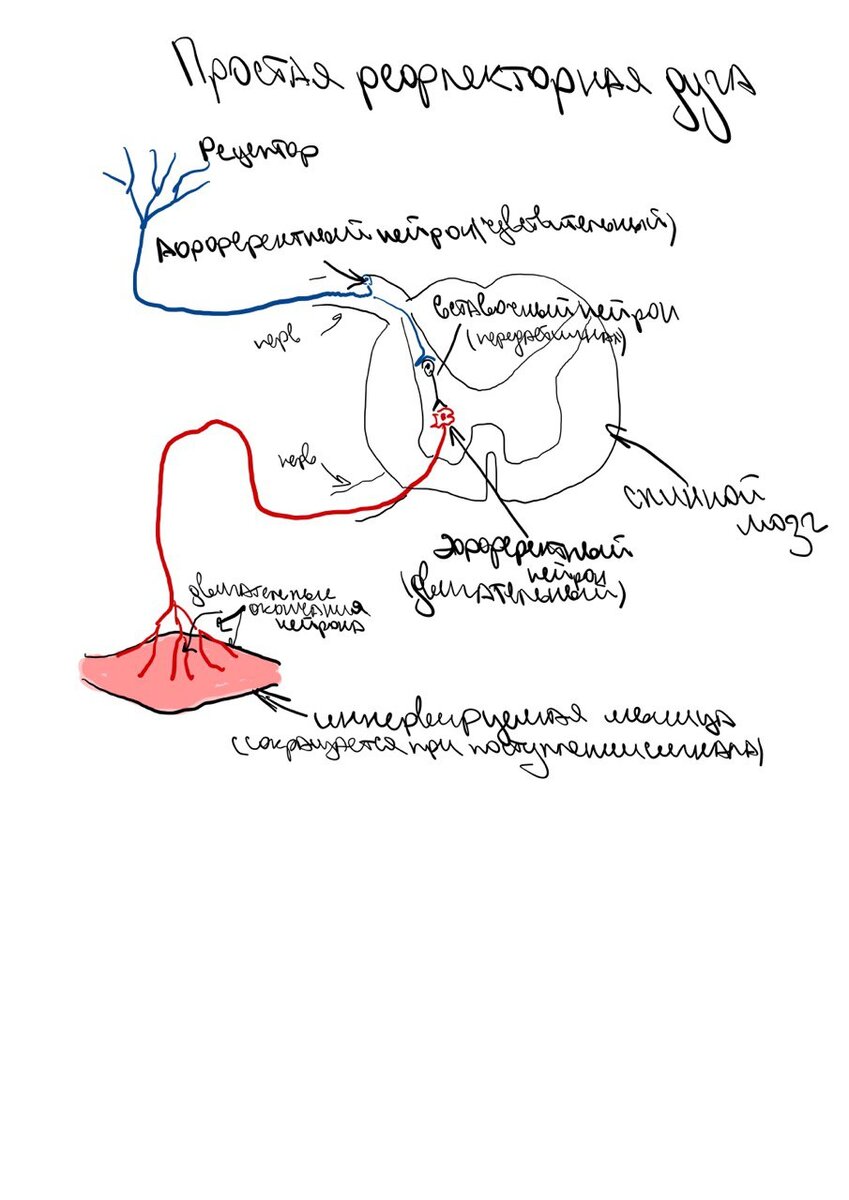 Простая рефлекторная дуга
Рецептор
Афферентный нейрон (чувствительный)
вставочный нейрон
нерв
нерв
спинной
мозг
Эфферентный
нейрон
(двигательный)
двигательные
окончания
нейрона
иннервируемая мышца
(сокращается при поступлении сигнала)